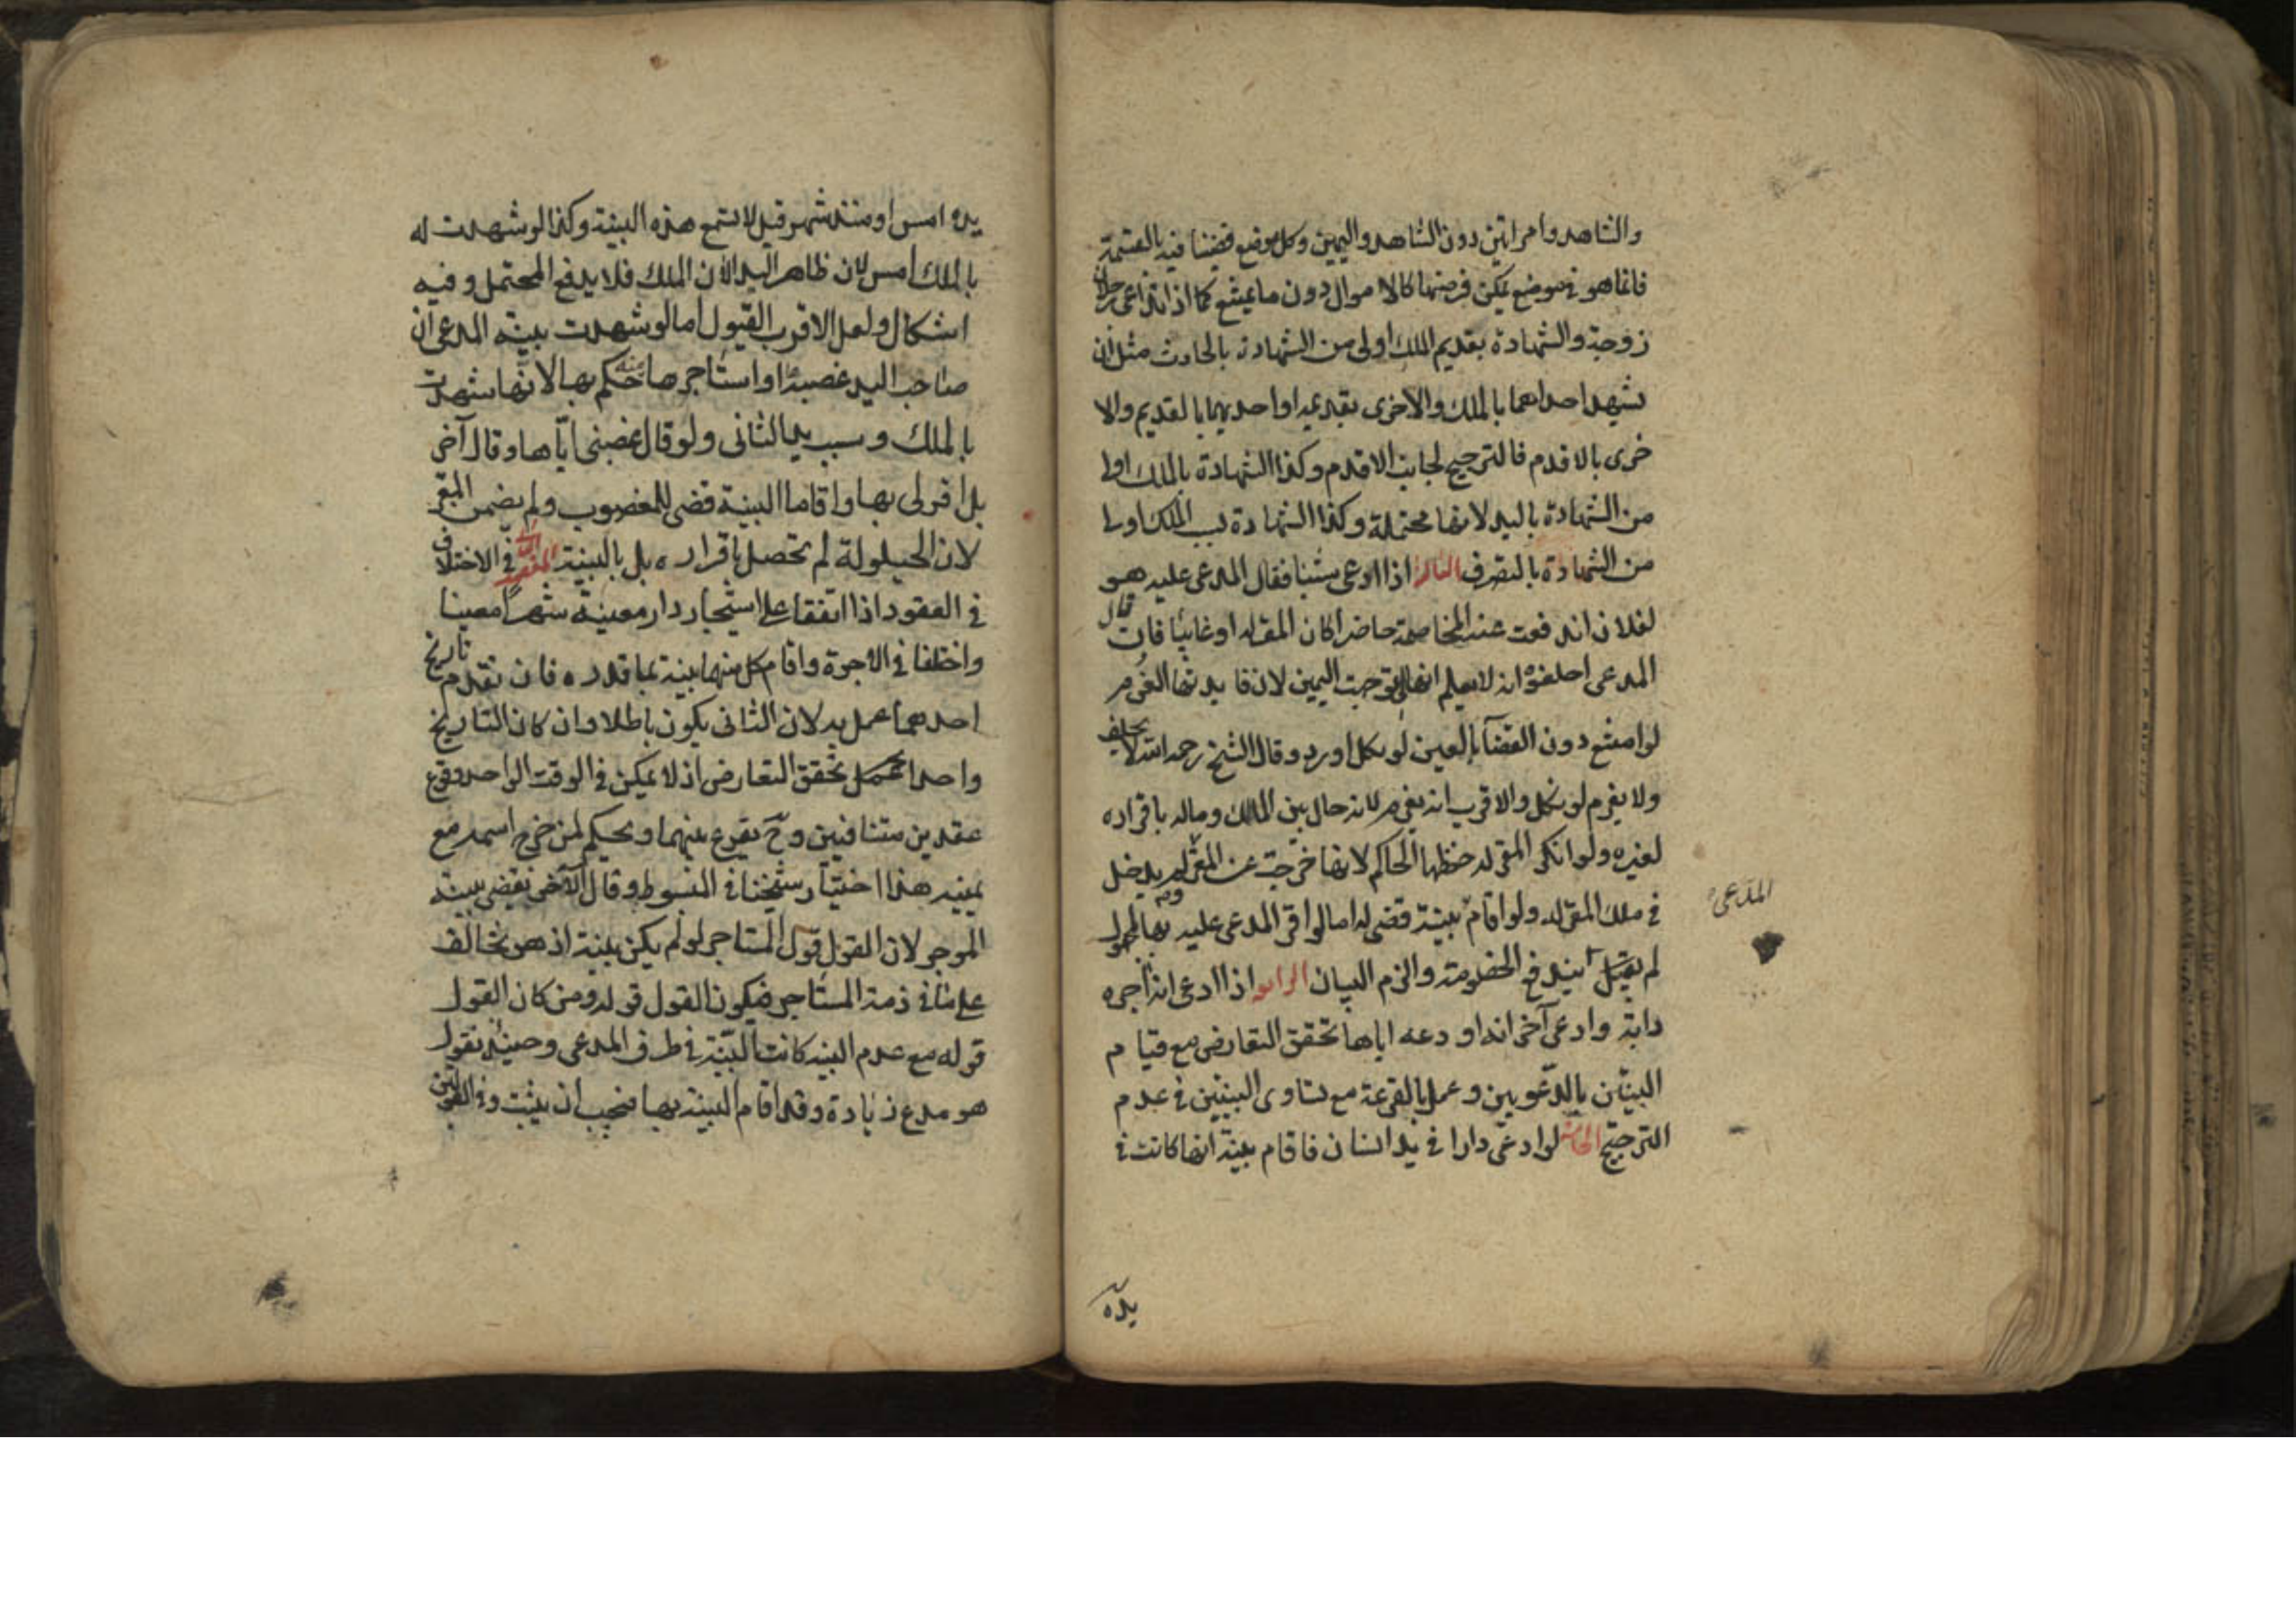 والشاهد وامراتين دون الشاهد واليمين وكل موضع قضينا فيه بالقسمة
فانما هو في موضع يمكن فرضها كالاموال دون ما يمتنع كما اذا تداعى رجلان
زوجة والشهادة بقديم الملك اولى من الشهادة بالحادث مثل ان
تشهد احداهما بالملك والاخرى بقديمه او احديهما بالقديم والا
خرى بالاقدم فالترجيح لجانب الاقدم وكذا الشهادة بالملك اولى
من الشهادة باليد لانها محتملة وكذا الشهادة بسبب الملك اولى
من الشهادة بالتصرف الثالثة اذا ادعى شيئا فقال المدعى عليه هو
لفلان اندفعت عنه المخاصمة حاضرا كان المقر له او غايبا فان قال
المدعى احلفوه انه لا يعلم انها لى توجهت اليمين لان فايدتها الغرم
لو امتنع دون القضآ بالعين لو نكل او رد وقال الشيخ رحمه الله لا يحلف
ولا يغرم لو نكل والاقرب انه يغرم لانه حال بين المالك وماله باقراره
لغيره ولو انكر المقر له حفظها الحاكم لانها خرجت عن المقر ولم يدخل
في ملك المقر له ولو اقام بينة قضى له اما لو اقر المدعى عليه بها لمجهول
المدعى
لم يقبل اقراره
لم تندفع الخصومة والزم البيان الرابعة اذا ادعى انه آجره
دابة وادعى آخر انه اودعه اياها تحقق التعارض مع قيام
البينتين بالدعويين وعمل بالقرعة مع تساوى البينتين في عدم
الترجيح الخامسة لو ادعى دارا في يد انسان فاقام بينة انها كانت في
يده
يده امس او منذ شهر قيل لا تسمع هذه البينة وكذا لو شهدت له
بالملك امس لان ظاهر اليد الآن الملك فلا يدفع بالمحتمل وفيه
اشكال ولعل الاقرب القبول اما لو شهدت بينة المدعى ان
صاحب اليد غصبه او استاجرها منه حكم بها لانها شهدت
بالملك وسبب يد الثانى ولو قال غصبنى اياها وقال آخر
بل اقر لى بها واقاما البينة قضى للمغصوب ولم يضمن المقر
لان الحيلولة لم تحصل باقراره بل بالبينة المقصد الثانى في الاختلاف
في العقود اذا اتفقا على استيجار دار معينة شهرا معينا
واختلفا في الاجرة واقام كل منهما بينة بما قدره فان تقدم تاريخ
احدهما عمل به لان الثانى يكون باطلا وان كان التاريخ
واحدا تحقق التعارض اذ لا يمكن في الوقت الواحد وقوع
عقدين متنافيين وح يقرع بينهما ويحكم لمن خرج اسمه مع
يمينه هذا اختيار شيخنا في المبسوط وقال الآخر نقضى ببينة
الموجر لان القول قول المستاجر لو لم يكن بينة اذ هو يخالف
على ما في ذمة المستاجر فيكون القول قوله ومن كان القول
قوله مع عدم البينة كانت البينة في طرف المدعى وحينئذ نقول
هو مدع زيادة وقد اقام البينة بها فيجب ان يثبت وفي القولين